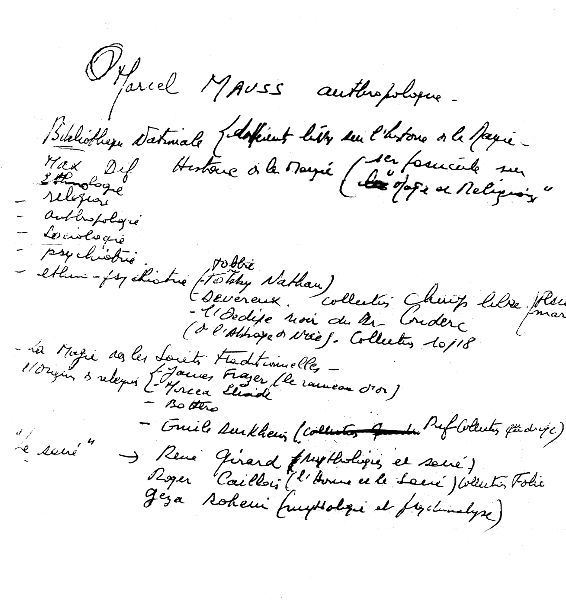 Marcel MAUSS anthropologue -
Bibliothèque Nationale { livres sur l'histoire de la Magie -
Max Histoire de la Magie ( ses fascicule sur
"Magie et Religions"
Ethnologie
- religion
- anthropologie
- Sociologie
- psychiatrie.
- ethno-psychiatrie ( Tobbie
(Nathan)
(Devereux. collection Champ libre.
- l'Oedipe noir du
Collection 10/18
- La Magie des les Sociétés traditionnelles -
{ - James Frazer (le rameau d'or)
- Mircea Eliade
- Bottero
- Emile Durkheim ( Puf Collection
"le sacré" → René Girard (mythologies et sacré)
Roger Caillois (l'Homme et le Sacré) Collection Folio
Géza Roheim (mythologie et psychanalyse)